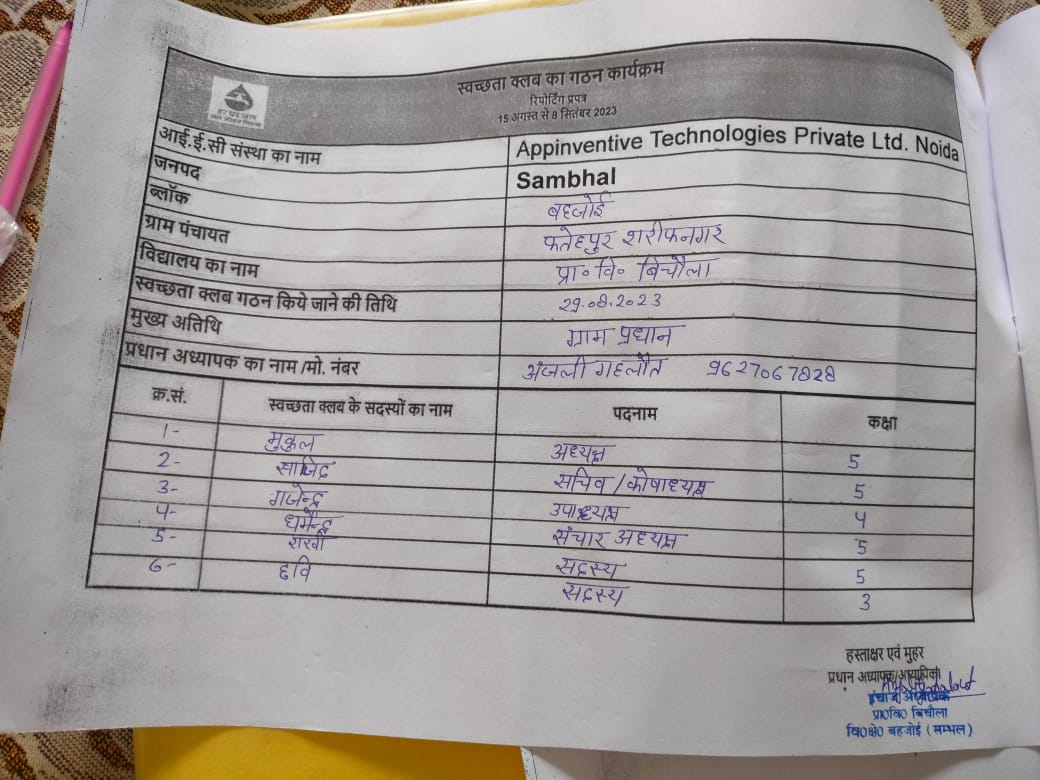 स्वच्छता क्लब का गठन कार्यक्रम
रिपोर्टिंग प्रपत्र
15 अगस्त से 8 सितंबर 2023
हर घर जल
जल जीवन मिशन
आई.ई.सी संस्था का नाम Appinventive Technologies Private Ltd. Noida
जनपद Sambhal
ब्लॉक बहजोई
ग्राम पंचायत फतेहपुर शरीफनगर
विद्यालय का नाम प्रा० वि० बिचौला
स्वच्छता क्लब गठन किये जाने की तिथि 29.08.2023
मुख्य अतिथि ग्राम प्रधान
प्रधान अध्यापक का नाम /मो. नंबर अंजली गहलौत 9627067828
क्र.सं. स्वच्छता क्लब के सदस्यों का नाम पदनाम कक्षा
1- मुकुल अध्यक्ष 5
2- साजिद सचिव / कोषाध्यक्ष 5
3- गजेन्द्र उपाध्यक्ष 4
4- धर्मेन्द्र संचार अध्यक्ष 5
5- सदस्य 5
6- छवि सदस्य 3
हस्ताक्षर एवं मुहर
प्रधान अध्यापक/अध्यापिका
इंचार्ज अध्यापक
प्रा०वि० बिचौला
वि०क्षे० बहजोई (सम्भल)